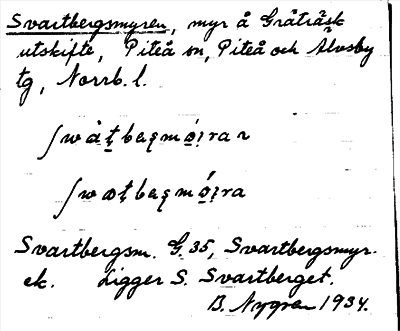 Svartbergsmyren, myr å Gråträsk
utskifte, Piteå sn, Piteå och Älvsby
tg, Norrb. l.
Svartbergsm. G. 35, Svartbergsmyr.
ek. Ligger S. Svartberget.
B. Nygren 1934.